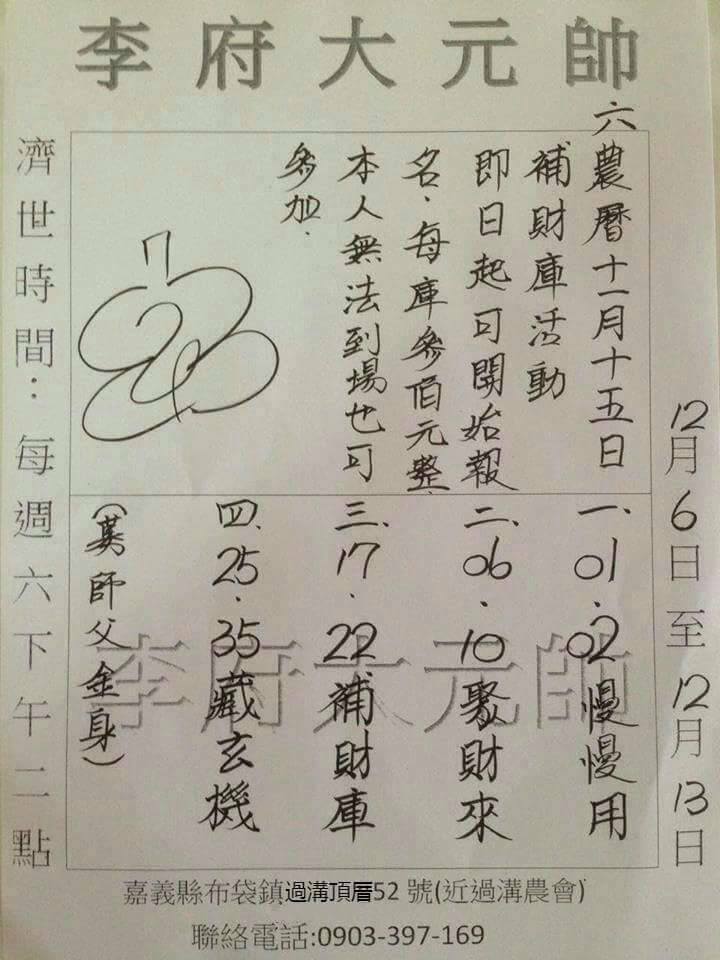 李府大元帥
12月6日至12月13日
六農曆十一月十五日
補財庫活動
即日起可開始報
名.每庫參佰元整.
本人無法到場也可
參加.
一、01.02慢慢用
二、06.10聚財來
三、17.22補財庫
四、25.35藏玄機
(英師父金身)
李府大元帥
濟世時間:每週六下午二點
嘉義縣布袋鎮過溝頂厝52號(近過溝農會)
聯絡電話:0903-397-169